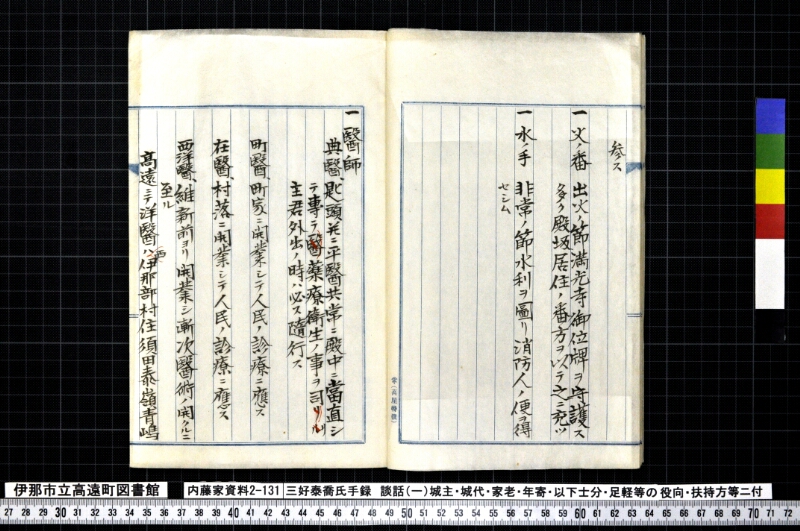 参ス
一 火ノ番 出火ノ節満光寺御位牌ヲ守護ス
多ク殿坂居住ノ番方ヲ以テ之ニ充ツ
一 水ノ手 非常ノ節水利ヲ圖リ消防人ノ便ヲ得
セシム
一 醫師
典醫、匙頭并ニ平醫共常ニ殿中ニ當直シ
テ専ラ醫藥療衛生ノ事ヲ司リ
主君外出ノ時ハ必ス隨行ス
町醫、町家ニ開業シテ人民ノ診療ニ應ス
在醫、村落ニ開業シテ人民ノ診療ニ應ス
西洋醫、維新前ヨリ開業シ漸次醫術ノ開クルニ
至ル
高遠ニテ洋醫ハ西伊那部村住須田泰嶺青嶋
伊那市立高遠町図書館
内藤家資料2-131 三好泰喬氏手録 談話(一)城主・城代・家老・年寄・以下士分・足軽等の役向・扶持方等ニ付
27 28 29 30 31 32 33 34 35 36 37 38 39 40 41 42 43 44 45 46 47 48 49 50 51 52 53 54 55 56 57 58 59 60 61 62 63 64 65 66 67 68 69 70 71 72